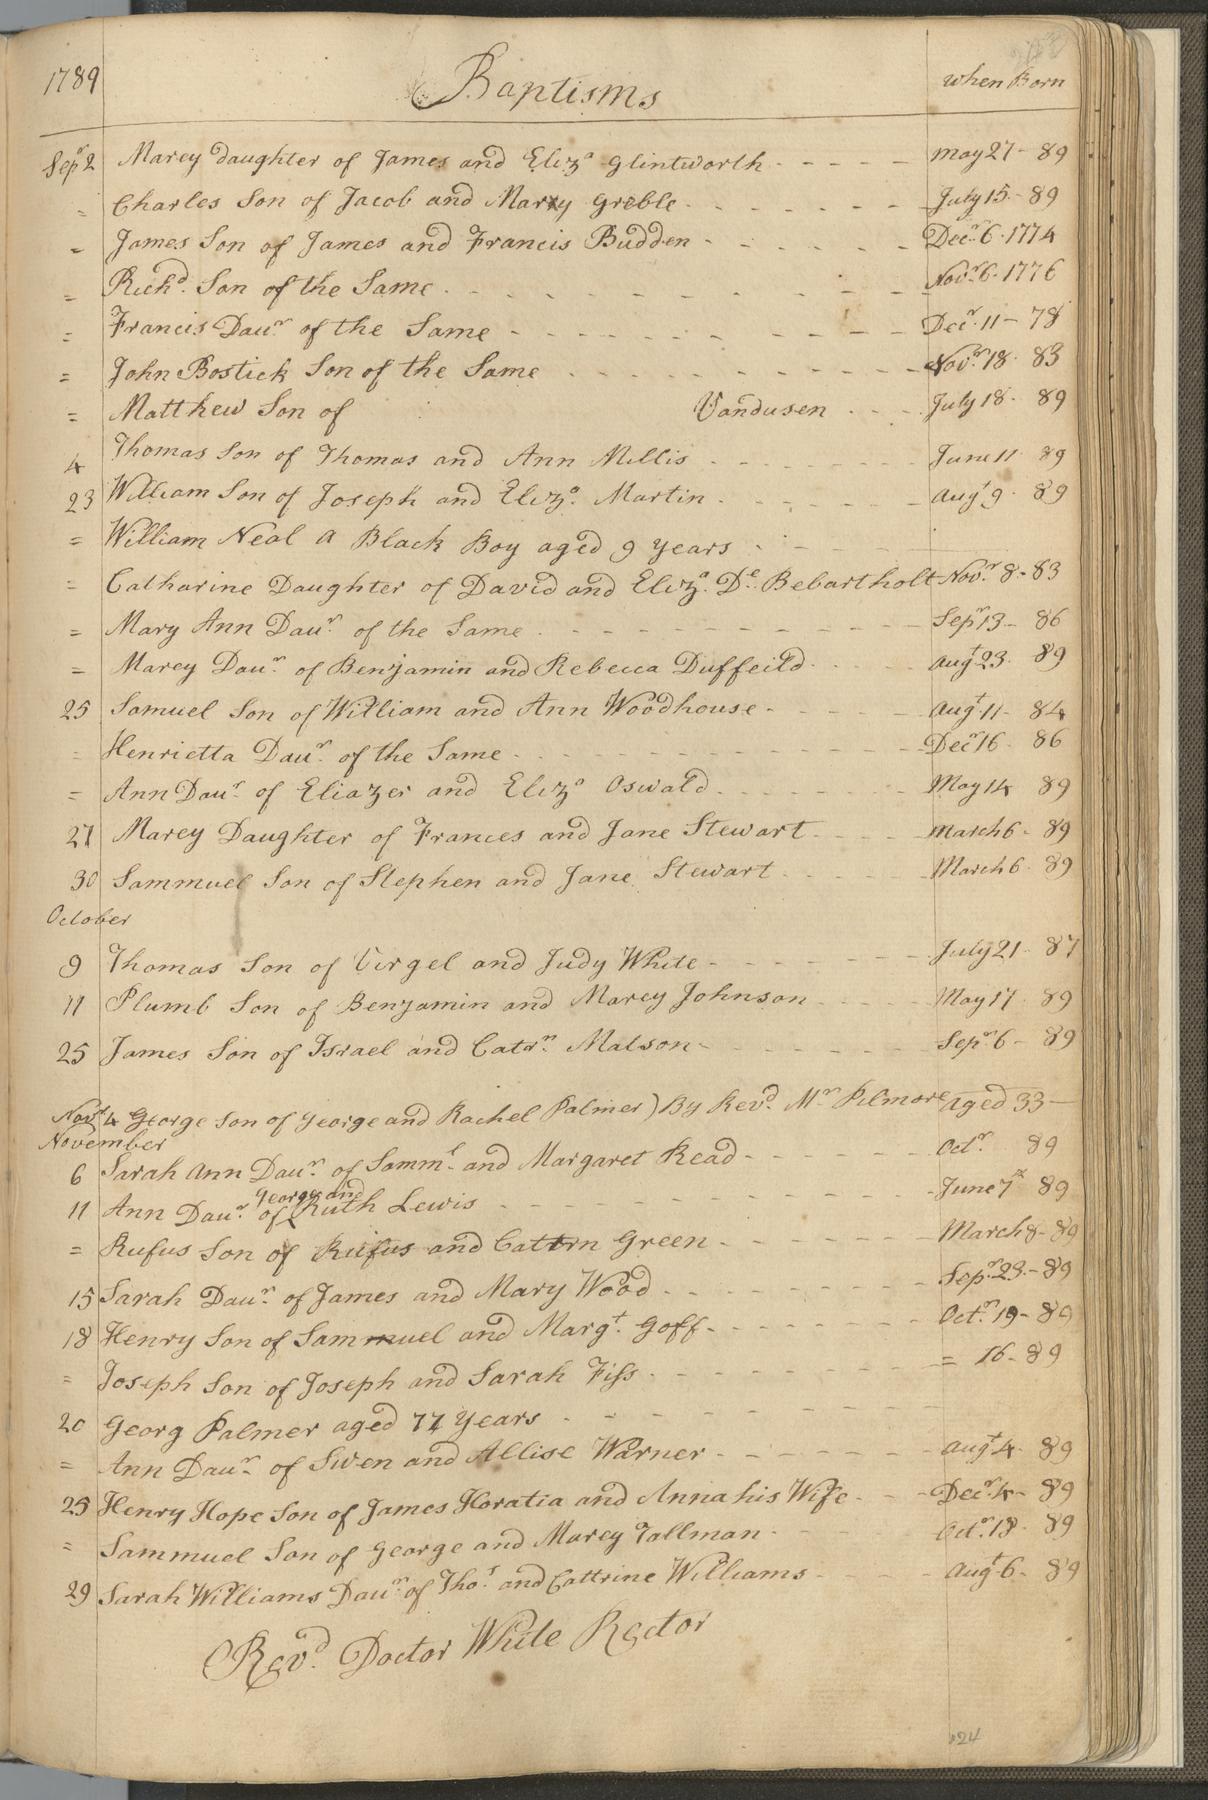 1789 Baptisms when Born
Sepr 2 Marey daughter of James and Eliza Glintworth - - - - - May 27 - 89
= Charles Son of Jacob and Mary Greble - - - - - - - July 15 - 89
= James Son of James and Francis Budden - - - - - - Decr 6 1774
= Richd Son of the Same - - - - - - - - - - Novr 6 1776
= Francis Daur of the Same - - - - - - - - - Decr 11 - 78
= John Bostick Son of the Same - - - - - - - - - Novr 18 83
= Matthew Son of Vandusen - - - July 18 - 89
4 Thomas Son of Thomas and Ann Millis - - - - - - - June 11 89
23 William Son of Joseph and Eliza Martin - - - - - - Augt 9 89
= William Neal a Black Boy aged 9 years - - -
= Catharine Daughter of David and Eliza De Bebartholt Novr 8 - 83
= Mary Ann Daur of the Same - - - - - - - - - Sepr 13 - 86
= Marey Daur of Benjamin and Rebecca Duffeild - - - - Augt 23 89
25 Samuel Son of William and Ann Woodhouse - - - - - Augt 11 - 84
= Henrietta Daur of the Same - - - - - - - - - - Decr 16 86
= Ann Daur of Eliazer and Eliza Oswald - - - - - - - May 14 89
27 Marey Daughter of Frances and Jane Stewart - - - - March 6 - 89
30 Sammuel Son of Stephen and Jane Stewart - - - - - March 6 89
October
9 Thomas Son of Virgel and Judy White - - - - - - - July 21 - 87
11 Plumb Son of Benjamin and Marey Johnson - - - - May 17 89
25 James Son of Israel and Catrn Matson - - - - - - - Sepr 6 - 89
4 George Son of George and Rachel Palmer) By Revd Mr Pilmore aged 33 -
November
6 Sarah Ann Daur of Samml and Margaret Read - - - - - - Octr 89
George and
11 Ann Daur of Ruth Lewis - - - - - - - - - June 7 89
= Rufus Son of Rufus and Cattrn Green - - - - - - March 8 - 89
15 Sarah Daur of James and Mary Wood - - - - - - - Sepr 23 - 89
18 Henry Son of Sammuel and Margt Goff - - - - - - - Octr 19 - 89
= Joseph Son of Joseph and Sarah Fiss - - - - - - - - = 16 - 89
20 Georg Palmer aged 77 years - - - - - - - - -
= Ann Daur of Swen and Allise Warner - - - - - - Augt 4 89
25 Henry Hope Son of James Horatia and Anna his Wife - - - Decr 4 - 89
= Sammuel Son of George and Marey Tallman - - - - Octr 18 89
29 Sarah Williams Daur of Thos and Cattrine Williams - - - - Augt 6 - 89
Revd Doctor White Rector
124